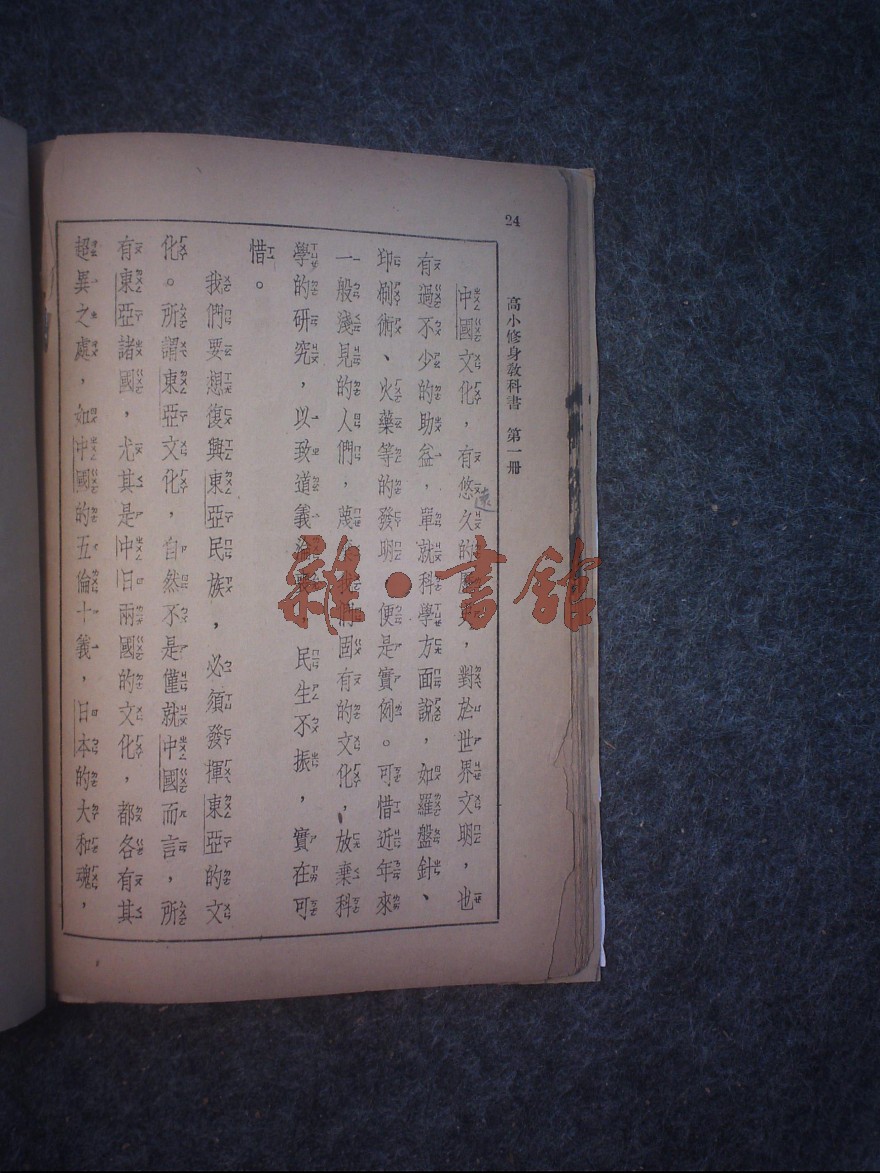 24
高小修身教科書 第一冊
中國文化，有悠久的歷史，對於世界文明，也
遠
有過不少的助益，單就科學方面說，如羅盤針、
印刷術、火藥等的發明，便是實例。可惜近年來
一般淺見的人們，蔑 們固有的文化，放棄科
學的研究，以致道義淪 ，民生不振，實在可
惜。
我們要想復興東亞民族，必須發揮東亞的文
化。所謂東亞文化，自然不是僅就中國而言，所
有東亞諸國，尤其是中日兩國的文化，都各有其
超異之處，如中國的五倫十義，日本的大和魂，
雜·書館